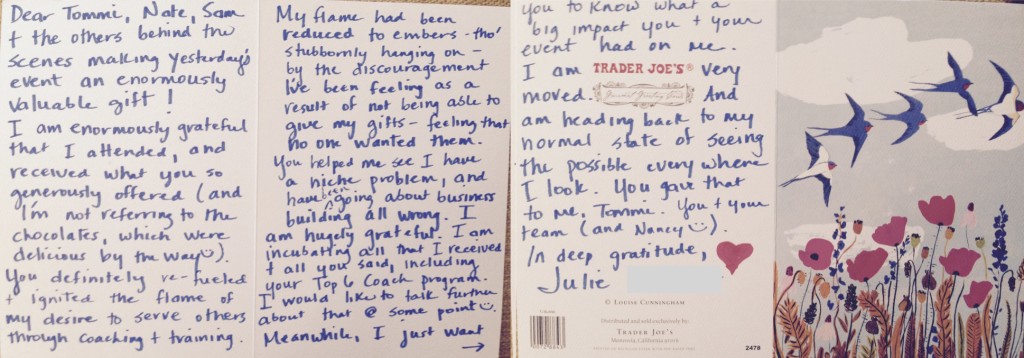 Dear Tommi, Nate, Sam
+ the others behind the
scenes making yesterday's
event an enormously
valuable gift!
I am enormously grateful
that I attended, and
received what you so
generously offered (and
I'm not referring to the
chocolates, which were
delicious by the way☺).
You definitely re-fueled
+ ignited the flame of
my desire to serve others
through coaching + training.
My flame had been
reduced to embers - tho'
stubbornly hanging on -
by the discouragement
I've been feeling as a
result of not being able to
give my gifts - feeling that
no one wanted them.
You helped me see I have
a niche problem, and
have been going about business
building all wrong. I
am hugely grateful. I am
incubating all that I received
+ all you said, including
your Top 6 Coach program.
I would like to talk further
about that @ some point☺.
Meanwhile, I just want
→
you to know what a
big impact you + your
event had on me.
I am TRADER JOE'S® very
moved. And
am heading back to my
normal state of seeing
the possible every where
I look. You gave that
to me, Tommi. You + your
team (and Nancy☺).
In deep gratitude,
Julie
© LOUISE CUNNINGHAM
Distributed and sold exclusively by:
TRADER JOE'S
Monrovia, California 91016
2478